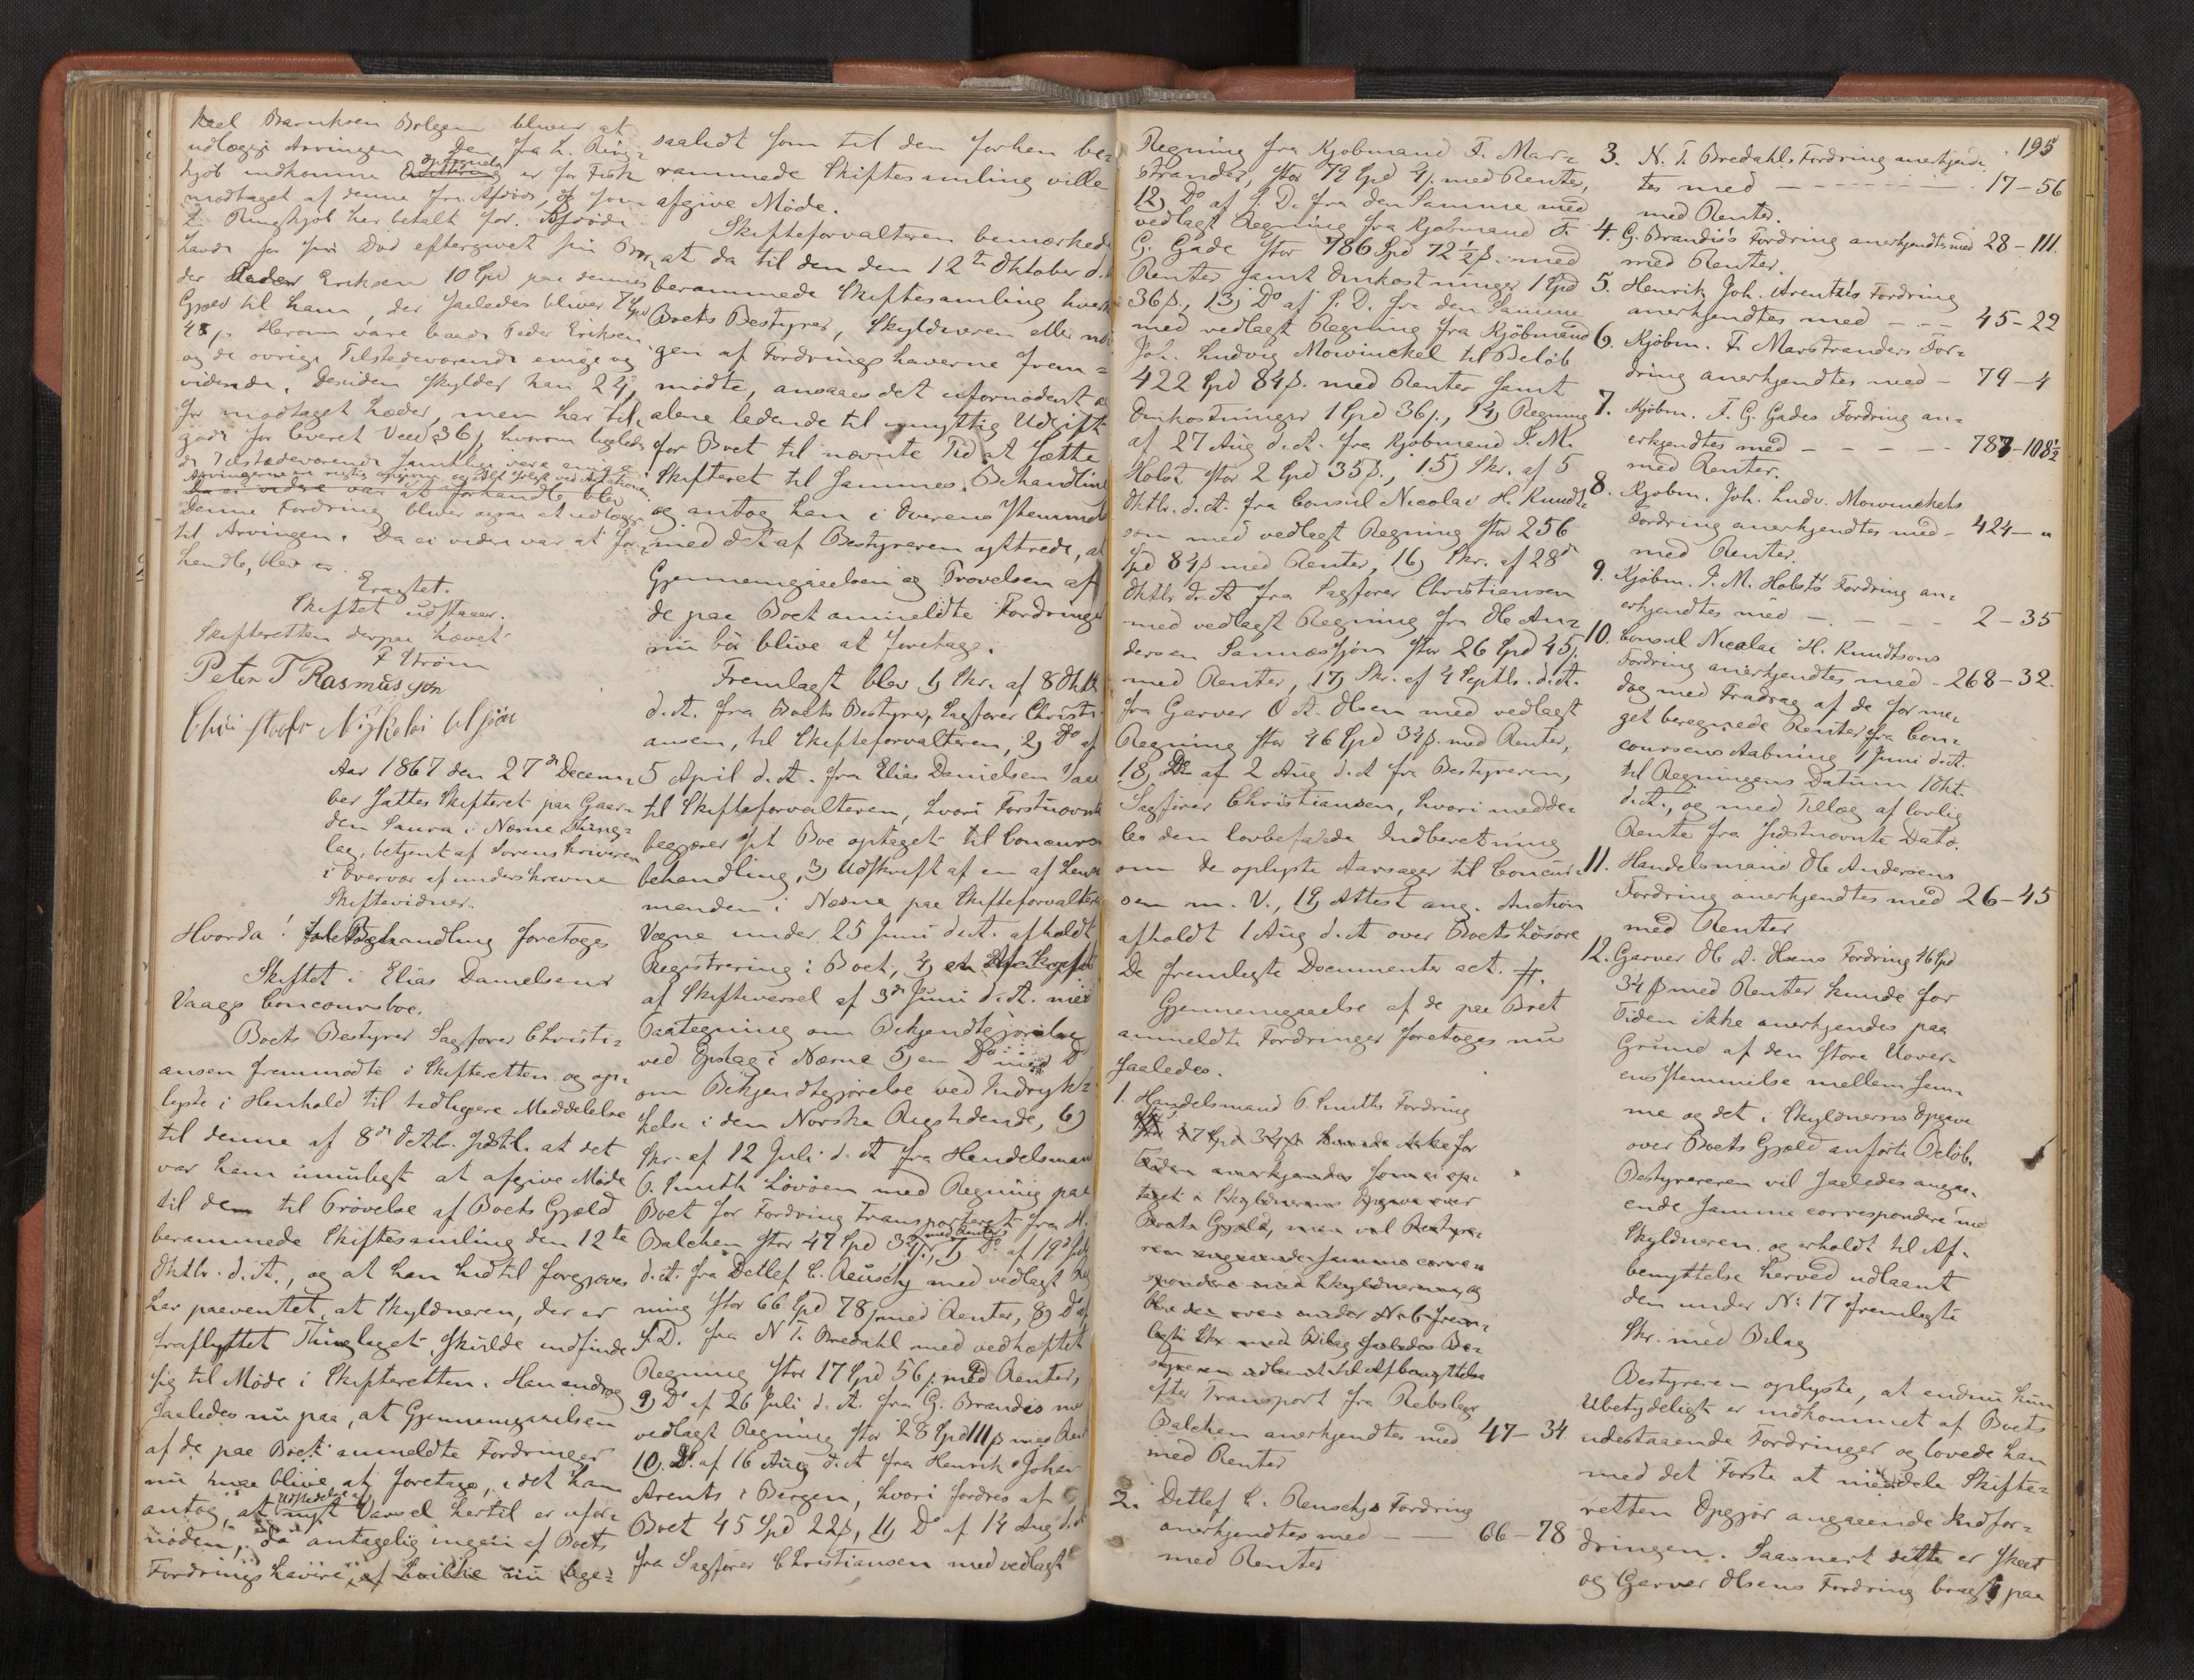 kael Barnhsen Bolegen bliver at
udlægges Arvingen. Den fra L. Ring-
kjøb indkomne Opgivende er for Fisk
modtaget af denne fra Afdøde, og som
L. Ringkjøb har betalt for. Afdøde
havde før sin Død eftergivet sin Bro-
der Peder Eriksen 10 Spd paa dennes
Gjæld til ham, der saaledes bliver 7 Spd
48 s. Herom vare baade Peder Eriksen
og de øvrige Tilstedeværende enige og
vidende. Desuden skylder han 24 s
for modtaget Læder, men har til-
gode for leveret Veed 36 s, hvorom ligeledes
de Tilstedeværende samtlige vare enige.
Denne Fordring bliver ogsaa at udlægge
til Arvingen. Da ei videre var at for-
handle, blev
Eragtet.
Skiftet udstaaer.
Skifteretten derpaa hævet.
P Strøm
Peter T Rasmussøn
Christoffer Nikolai Olsøn
Aar 1867 den 27de Decem-
ber sattes Skifteret paa Gaar-
den Saura i Næsne Thing-
lag, betjent af Sorenskriveren
i Overvær af underskrevne
Skiftevidner.
Hvorda! foretoges
Skiftet i Elias Danielsens
Vaags Concoursboe.
Boets Bestyrer Sagfører Christi-
ansen fremmødte i Skifteretten og op-
lyste i Henhold til tidligere Meddelelse
til denne af 8de Oktbr. sidstl. at det
var ham umuligt at afgive Møde
til den til Prøvelse af Boets Gjæld
berammede Skiftesamling den 12te
Oktbr. d. A., og at han hidtil forgjæves
har paaventet, at Skyldneren, der er
fraflyttet Thinglaget, skulde indfinde
sig til Møde i Skifteretten. Han androg
saaledes nu paa, at Gjennemgaaelsen
af de paa Boet anmeldte Fordringer
nu maa blive at foretage, idet han
antog, at Udstedelse af nyt Varsel hertil er ufor-
nøden, da antagelig ingen af Boets
Fordringshavere, af hvilke nu lige-
saalidt som til den forhen be-
rammede Skiftesamling ville
afgive Møde.
Skifteforvalteren bemærkede
at da til den den 12te Oktober d. A.
berammede Skiftesamling hverken
Boets Bestyrer, Skyldneren eller no-
gen af Fordringshaverne frem-
mødte, ansaaes det ufornødent og
alene ledende til unyttig Udgift
for Boet til nævnte Tid at sætte
Skifteret til sammes Behandling
og antog han i Overensstemmelse
med det af Bestyreren yttrede, at
Gjennemgaaelsen og Prøvelsen af
de paa Boet anmeldte Fordringer
nu bør blive at foretage.
Fremlagt blev 1, Skr. af 8 Oktbr
d. A. fra Boets Bestyrer, Sagfører Christi-
ansen, til Skifteforvalteren, 2, Do af
5 April d. A. fra Elias Danielsen Vaag
til Skifteforvalteren, hvori Førstnævnte
begjærer sit Boe optaget til Concours-
behandling, 3, Udskrift af en af Lens-
manden i Næsne paa Skifteforvalterens
Vegne under 25 Juni d. A. afholdt
Registrering i Boet, 4,
af Skiftevarsel af 3de Juni d. A. med
Paategning om Bekjendtgjørelse
ved Opslag i Næsne 5, en Do med Do
om Bekjendtgjørelse ved Indryk-
kelse i den Norske Rigstidende, 6,
Skr. af 12 Juli d. A. fra Handelsmand
C. Smith Løvøen med Regning paa
Boet for Fordring transporteret fra H.
Balchen stor 47 Spd 34 s. med Renter, 7, Do af 19de Juli
d. A. fra Detlef C. Reuschs med vedlagt Reg-
ning stor 66 Spd 78 s. med Renter, 8, Do af
s. D. fra N T. Bredahl med vedhæftet
Regning stor 17 Spd 56 s. med Renter,
9, Do af 26 Juli d. A. fra G. Brandis med
vedlagt Regning stor 28 Spd 111 s med Rent
10, Do af 16 Aug d. A fra Henrik Johan
Arents i Bergen, hvori fordres af
Boet 45 Spd 22 s, 11, Do af 14 Aug d. A
fra Sagfører Christiansen med vedlagt
195
Regning fra Kjøbmand F. Mar-
strander, stor 79 Spd 4 s. med Renter,
12, Do af s. D. fra den Samme med
vedlagt Regning fra Kjøbmand F.
G. Gade stor 786 Spd 72 ½ s. med
Renter samt Omkostninger 1 Spd
36 s., 13, Do af s. D. fra den Samme
med vedlagt Regning fra Kjøbmand
Joh. Ludvig Mowinckel til Beløb
422 Spd 84 s. med Renter samt
Omkostninger 1 Spd 36 s., 14, Regning
af 27 Aug d. A. fra Kjøbmand J. M.
Holst stor 2 Spd 35 s., 15, Skr. af 5
Oktb. d. A. fra Consul Nicolai H. Knudt-
son med vedlagt Regning stor 256
Spd 84 s med Renter, 16, Skr. af 28de
Oktb. d. A fra Sagfører Christiansen
med vedlagt Regning fra Ole An-
dersen Sannæssjøen stor 26 Spd 45 s.
med Renter, 17, Skr. af 4 Septb. d. A.
fra Garver O A. Olsen med vedlagt
Regning stor 46 Spd 34 s. med Renter,
18, Do af 2 Aug d. A fra Bestyreren,
Sagfører Christiansen, hvori medde-
les den lovbefalede Indberetning
om de oplyste Aarsager til Concour-
sen m. V., 19, Attest ang. Auction
afholdt 1 Aug d. A over Boets Løsøre
De fremlagte Documenter act. #.
Gjennemgaaelse af de paa Boet
anmeldte Fordringer foretoges nu
saaledes.
1. Handelsmand C. Smiths Fordring
stor 47 Spd 34 s kunde ikke for
Tiden anerkjendes som ei op-
taget i Skyldnerens Opgave over
Boets Gjæld, men vil Bestyre-
ren angaaende samme corre-
spondere med Skyldneren og
blev den under No 6 frem-
lagte Skr. med Bilag saaledes Be-
styreren udlaant til Afbenyttelse
efter Transport fra Rebslager
Balchen anerkjendtes med 47 – 34
med Renter
2. Detlef C. Reuschs Fordring
anerkjendtes med — 66 – 78
med Renter
3. N. T. Bredahls Fordring anerkjend-
tes med — 17 – 56
med Renter.
4. G. Brandis's Fordring anerkjendtes med 28 – 111.
med Renter.
5. Henrik Joh. Arentz's Fordring
anerkjendtes med — 45 – 22
6. Kjøbm. F. Marstranders For-
dring anerkjendtes med – 79 – 4
7. Kjøbm. F. G. Gades Fordring an-
erkjendtes med — 787 – 108½
med Renter.
8. Kjøbm. Joh. Ludv. Mowinckels
Fordring anerkjendtes med – 424 – "
med Renter.
9. Kjøbm. J. M. Holsts Fordring an-
erkjendtes med — 2 – 35
10. Consul Nicolai H. Knudtsons
Fordring anerkjendtes med – 268 – 32.
dog med Fradrag af de for me-
get beregnede Renter fra Con-
coursens Aabning 1 Juni d. A.
til Regningens Datum 1 Okt.
d. A., og med Tillæg af lovlig
Rente fra sidstnævnte Dato.
11. Handelsmand Ole Andersens
Fordring anerkjendtes med 26 – 45
med Renter
12. Garver Ole A. Olsens Fordring 46 Spd
34 s med Renter kunde for
Tiden ikke anerkjendes paa
Grund af den store Uover-
ensstemmelse mellem sam-
me og det i Skyldnerens Opgave
over Boets Gjæld anførte Beløb.
Bestyreren vil saaledes angaa-
ende samme correspondere med
Skyldneren og erholdt til Af-
benyttelse herved udlaant
den under No 17 fremlagte
Skr. med Bilag
Bestyreren oplyste, at endnu kun
Ubetydeligt er indkommet af Boets
udestaaende Fordringer og lovede han
med det Første at meddele Skifte-
retten Opgjør angaaende Indfor-
dringen. Saasnart dette er skeet
og Garver Olsens Fordring bragt paa